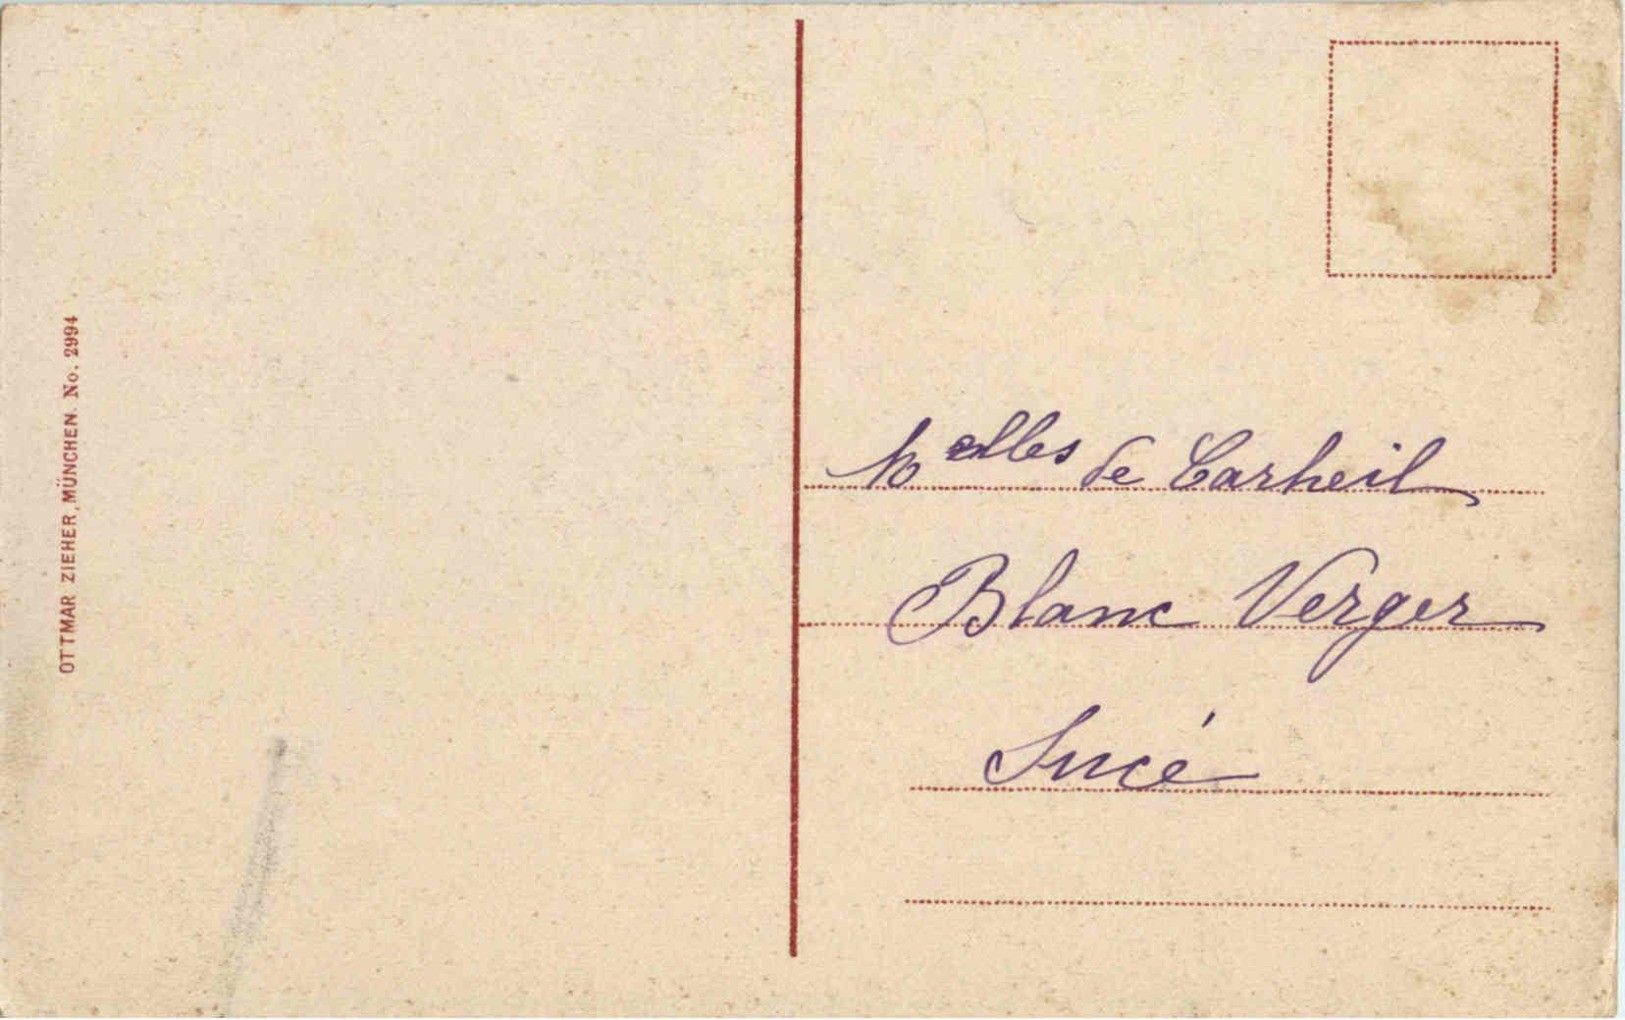 OTTMAR ZIEHER, MÜNCHEN. No. 2994
Melles de Carheil
Blanc Verger
Sucé